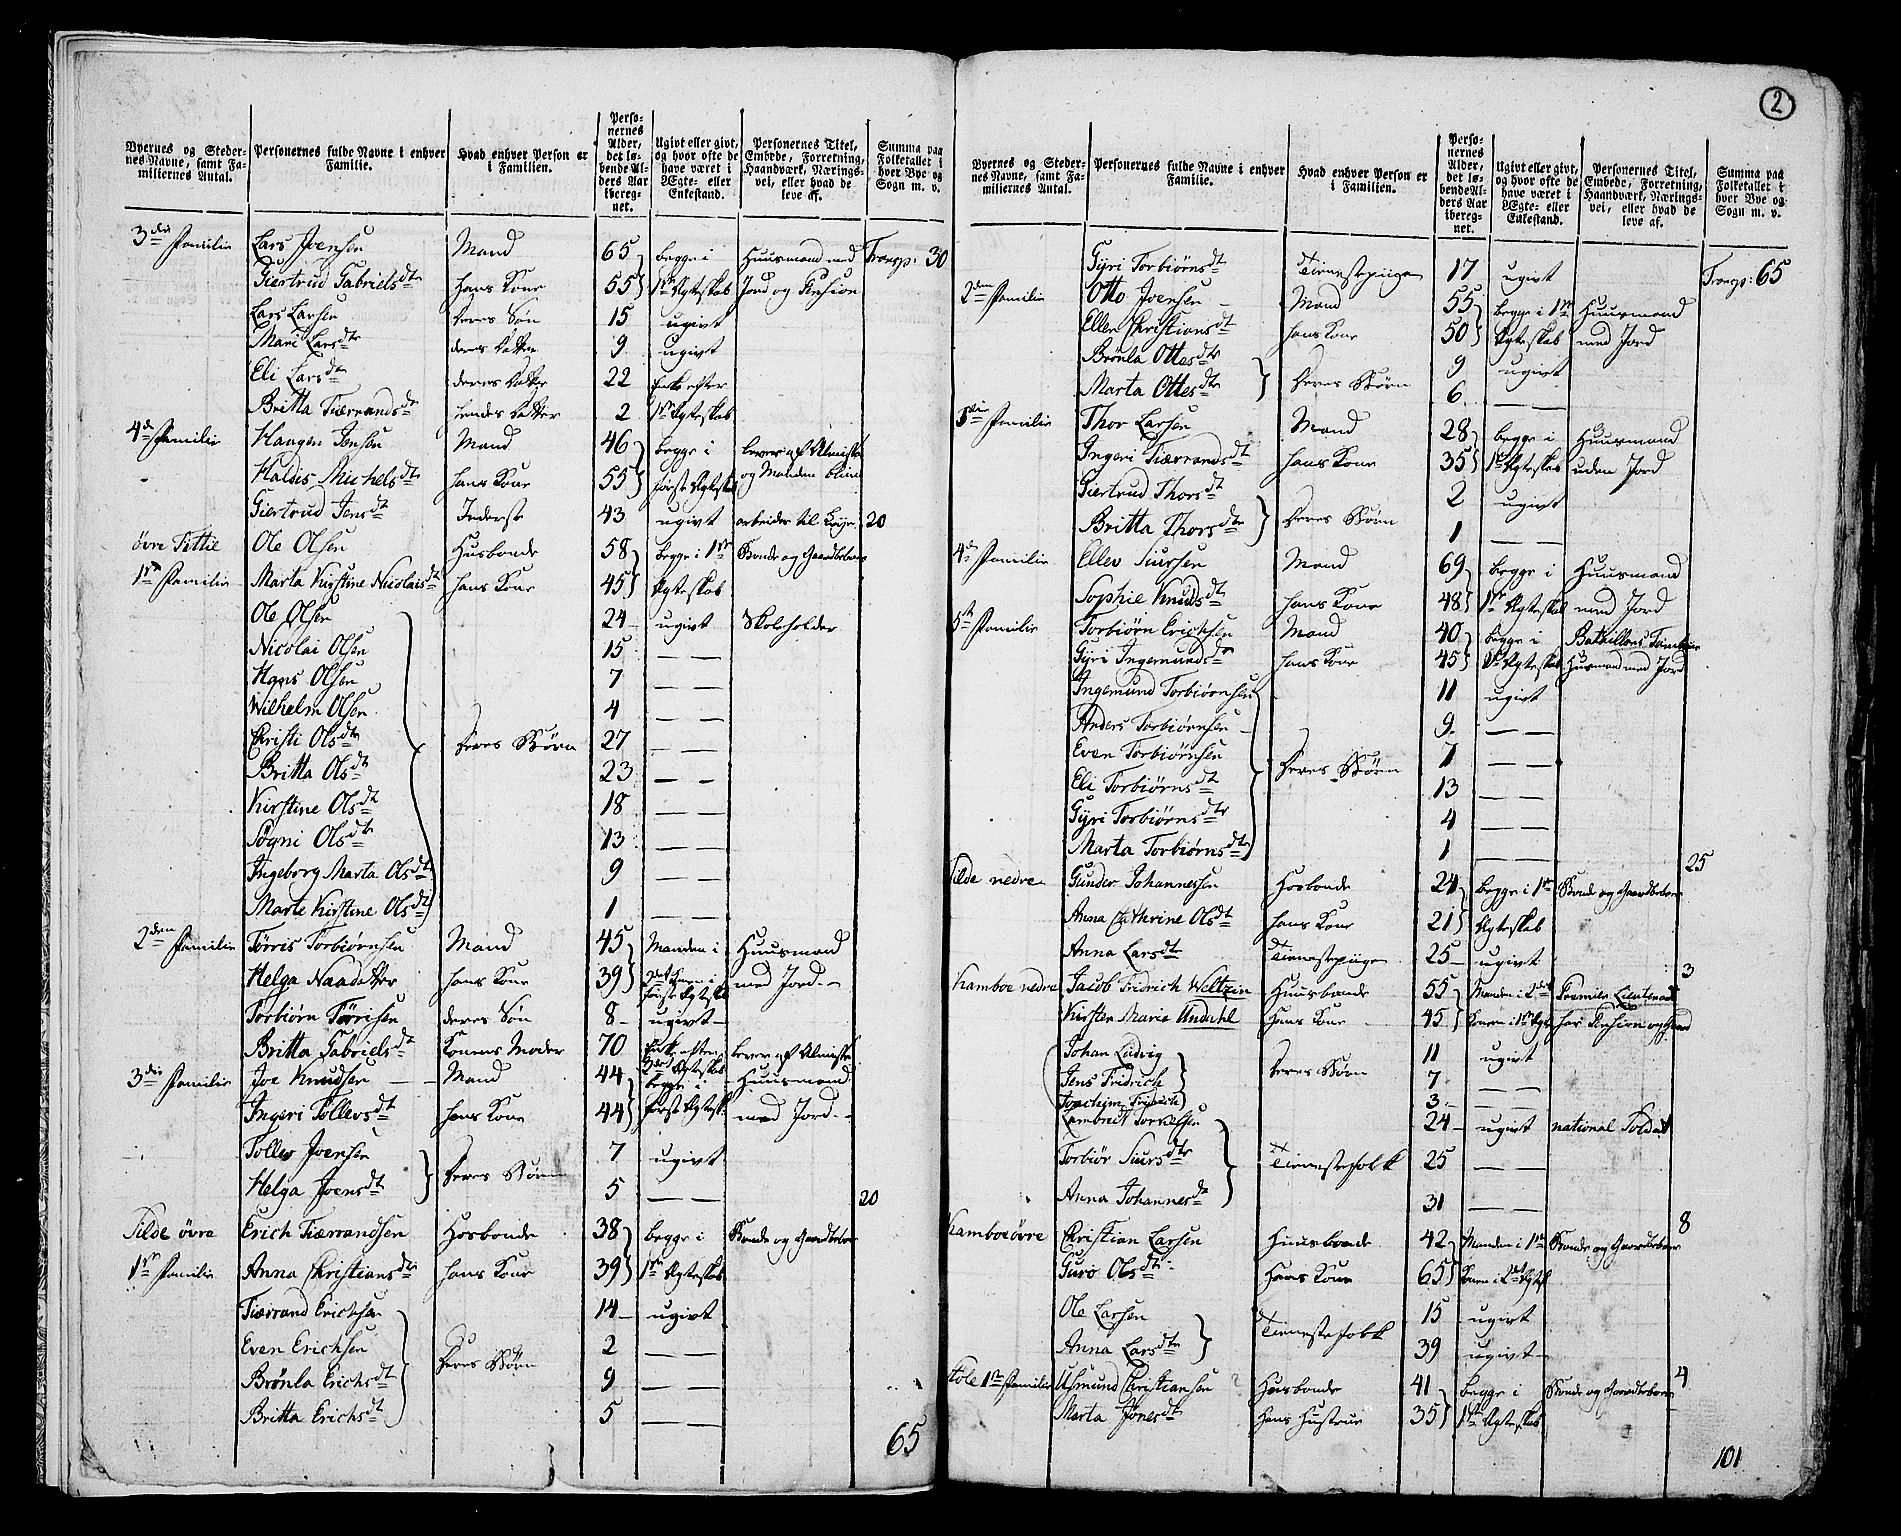 Byernes og Steder-
nes Navne, samt Fa-
miliernes Antal.
Personernes fulde Navne i enhver
Familie.
Hvad enhver Person er
i Familien.
Perso-
nernes
Alder,
det lø-
bende Al-
ders Aar
ibereg-
net.
Ugivt eller givt,
og hvor ofte de
have været i
Ægte- eller
Enkestand.
Personernes Titel,
Embede, Forretning,
Haandværk, Nærings-
vei, eller hvad de
leve af.
Summa paa
Folketallet i
hver Bye og
Sogn m. v.
3die Familie Lars Joensen Mand 65 begge i Huusmand med Transp: 30
Giertrud Gabrielsdtr hans Kone 55 1ste Ægteskab Jord og Pension
Lars Larsen deres Søn 15 ugivt
Mari Larsdtr deres Datter 9 ugivt
Eli Larsdtr deres Datter 22 Enke efter
Britta Tiærrandsdtr hendes Datter 2 1ste Ægteskab
4de Familie Haagen Jensen Mand 46 begge i lever af Almisse
Haldis Michelsdtr hans Kone 55 første Ægteskab og Manden blind
Giertrud Jensdtr Inderste 43 ugivt arbeider til Leye 20
øvre Tettie Ole Olsen Husbonde 58 begge i 1ste Bonde og Gaardbeboer
1ste Familie Marta Kirstine Nicolaisdt hans Kone 45 Ægteskab
Ole Olsen 24 ugivt Skoleholder
Nicolai Olsen 15 — —
Hans Olsen 7 — —
Wilhelm Olsen 4 — —
Christi Olsdtr deres Børn 27 — —
Britta Olsdt 23 — —
Kirstine Olsdt 18 — —
Sögni Olsdtr 13 — —
Ingeborg Marta Olsdt 9 — —
Marte Kirstine Olsdt 1 — —
2den Familie Törris Torbiörnsen Mand 45 Manden i Huusmand
Helga Naadatter hans Kone 39 2det Konen i første Ægtesk med Jord
Torbiörn Törrisen deres Søn 8 ugivt
Britta Gabrielsdt Konens Moder 70 Enke efter lever af Almisse
3die Familie Joe Knudsen Mand 44 begge i Huusmand
Ingeri Tollevsdt hans Kone 44 første Ægtesk med Jord
Tollev Joensen 7 ugivt
Helga Joensdt deres Børn 5 — — 20
Tilde øvre Erich Tiærrandsen Hosbonde 38 begge i Bonde og Gaardbeboer
1ste Familie Anna Christiansdtr hans Kone 39 1ste Ægteskab
Tiærrand Erichsen 14 ugivt
Even Erichsen deres Børn 2 — —
Brönla Erichsdt 9 — —
Britta Erichsdt 5 — —
65
2
Byernes og Steder-
nes Navne, samt Fa-
miliernes Antal.
Personernes fulde Navne i enhver
Familie.
Hvad enhver Person er
i Familien.
Perso-
nernes
Alder,
det lø-
bende Al-
ders Aar
ibereg-
net.
Ugivt eller givt,
og hvor ofte de
have været i
Ægte- eller
Enkestand.
Personernes Titel,
Embede, Forretning,
Haandværk, Nærings-
vei, eller hvad de
leve af.
Summa paa
Folketallet i
hver Bye og
Sogn m. v.
Gyri Torbiörnsdt Tienestepige 17 ugivt Transp: 65
2den Familie Otto Joensen Mand 55 begge i 1ste Huusmand
Ellen Christiansdt hans Kone 50 Ægteskab med Jord
Brönla Ottesdtr 9 ugivt
Marta Ottesdtr deres Børn 6 — —
3die Familie Thor Larsen Mand 28 begge i Huusmand
Ingeri Tiærrandsdt hans Kone 35 1ste Ægteskab uden Jord
Giertrud Thorsdt 2 ugivt
Britta Thorsdtr deres Børn 1 — —
4de Familie Ellev Siursen Mand 69 begge i Huusmand
Sophie Knudsdt hans Kone 48 1ste Ægteskab med Jord
5te Familie Torbiörn Erichsen Mand 40 begge i Bataillons Tambour
Gyri Ingemundsdtr hans Kone 45 1ste Ægteskab Husmand med Jord
Ingemund Torbiörnsen 11 ugivt
Anders Torbiörnsen 9 — —
Even Torbiörnsen 7 — —
Eli Torbiörnsdt deres Børn 13 — —
Gyri Torbiörnsdtr 4 — —
Marta Torbiörnsdt 1 — — 25
Tilde nedre Gunder Johannessen Hosbonde 24 begge i 1ste Bonde og Gaardbeboer
Anna Cathrine Olsdt hans Kone 21 Ægteskab
Anna Larsdt Tienestepige 25 ugivt 3
Kamboe nedre Jacob Fridrich Weltzin Huusbonde 55 Manden i 2det Premier Lieutenant
Kirsten Marie Undahl Hans Kone 45 Konen i 1ste Ægt har Pension og Gaard
Johan Ludvig 11 ugivt
Jens Fridrich deres Børn 7 — —
Joachim Fridrich 3 — —
Lambrect Torkelsen 24 ugivt national Soldat
Torbiör Siursdtr Tienestefolk 25 — —
Anna Johannesdtr 31 — — 8
Kamboe øvre Christian Larsen Huusbonde 42 Manden i 1ste Bonde og Gaardbeboer
Guro Olsdt Hans Kone 65 Konen i 2det Ægtsk
Ole Larsen Tienestefolk 15 ugivt
Anna Larsdtr 39 ugivt 4
1ste Familie Asmund Christiansen Husbonde 41 begge i Bonde og Gaardbeboer
Marta Jonesdt Hans Hustrue 35 1ste Ægteskab
101